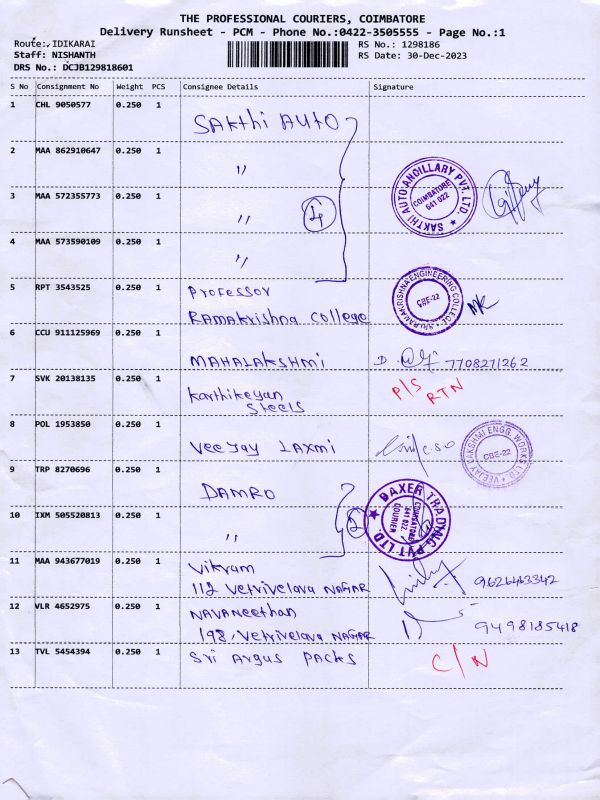 THE PROFESSIONAL COURIERS, COIMBATORE
Delivery Runsheet - PCM - Phone No.:0422-3505555 - Page No.:1
Route: IDIKARAI
RS No.: 1298186
Staff: NISHANTH
RS Date: 30-Dec-2023
DRS No.: DCJB129818601
S No Consignment No Weight PCS Consignee Details Signature
1 CHL 9050577 0.250 1 SAKthi AUTO
2 MAA 862910647 0.250 1 "
3 MAA 572355773 0.250 1 "
4
SAKTHI AUTO ANCILLARY PVT. LTD.
COIMBATORE
641 022
4 MAA 573590109 0.250 1 "
5 RPT 3543525 0.250 1 Professor
RAMAKrishna College
SRI RAMAKRISHNA ENGINEERING COLLEGE
CBE-22
6 CCU 911125969 0.250 1 MAHALAKSHMI 7708271262
7 SVK 20138135 0.250 1 Karthikeyan
Steels
P/S
RTN
8 POL 1953850 0.250 1 Veejay LAXMI
VEEJAY LAKSHMI ENGG. WORKS LTD
CBE-22
9 TRP 8270696 0.250 1 DAMRO
2
DAXER TRADYNG PVT LTD.
COIMBATORE
641 022.
COURIER
10 IXM 505520813 0.250 1 "
11 MAA 943677019 0.250 1 Vikram
112 Vetrivelava NAGAR
9626463342
12 VLR 4652975 0.250 1 NAVANeethan
198, Vetrivelava NAGAR
9498185418
13 TVL 5454394 0.250 1 Sri Argus Packs
C/N